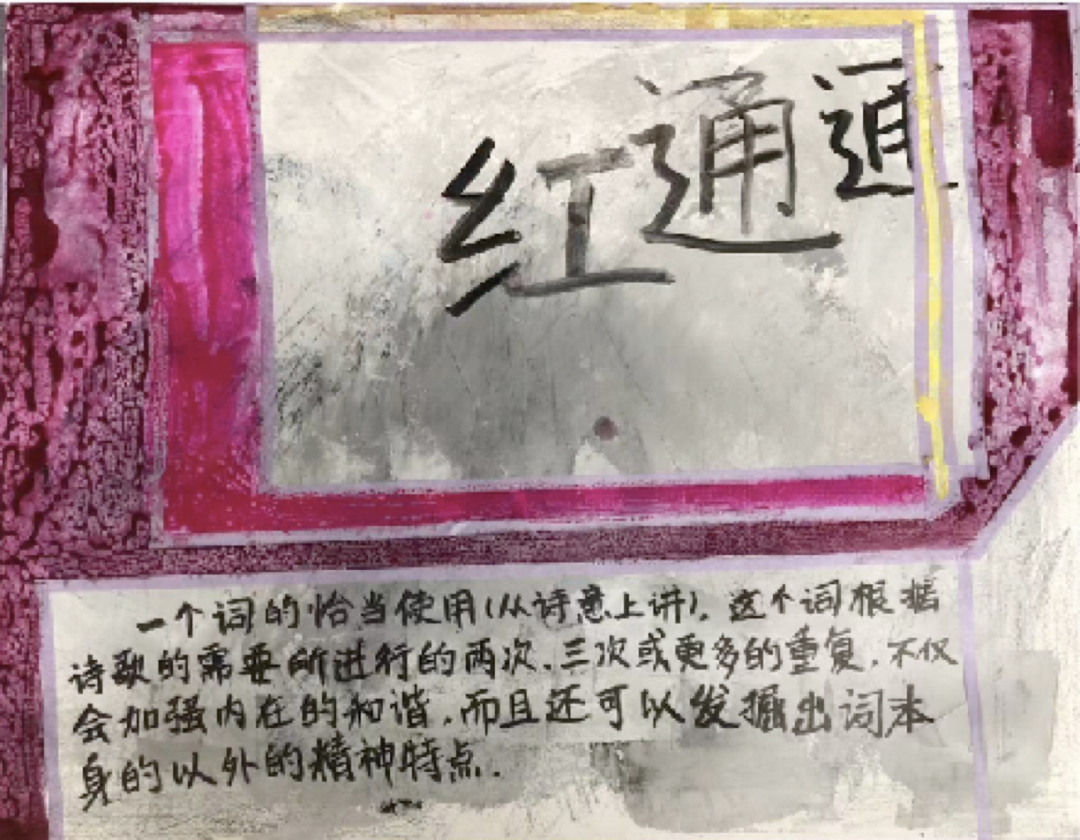 红通通
一个词的恰当使用(从诗意上讲)。这个词根据
诗歌的需要所进行的两次、三次或更多的重复,不仅
会加强内在的和谐,而且还可以发掘出词本
身的以外的精神特点.